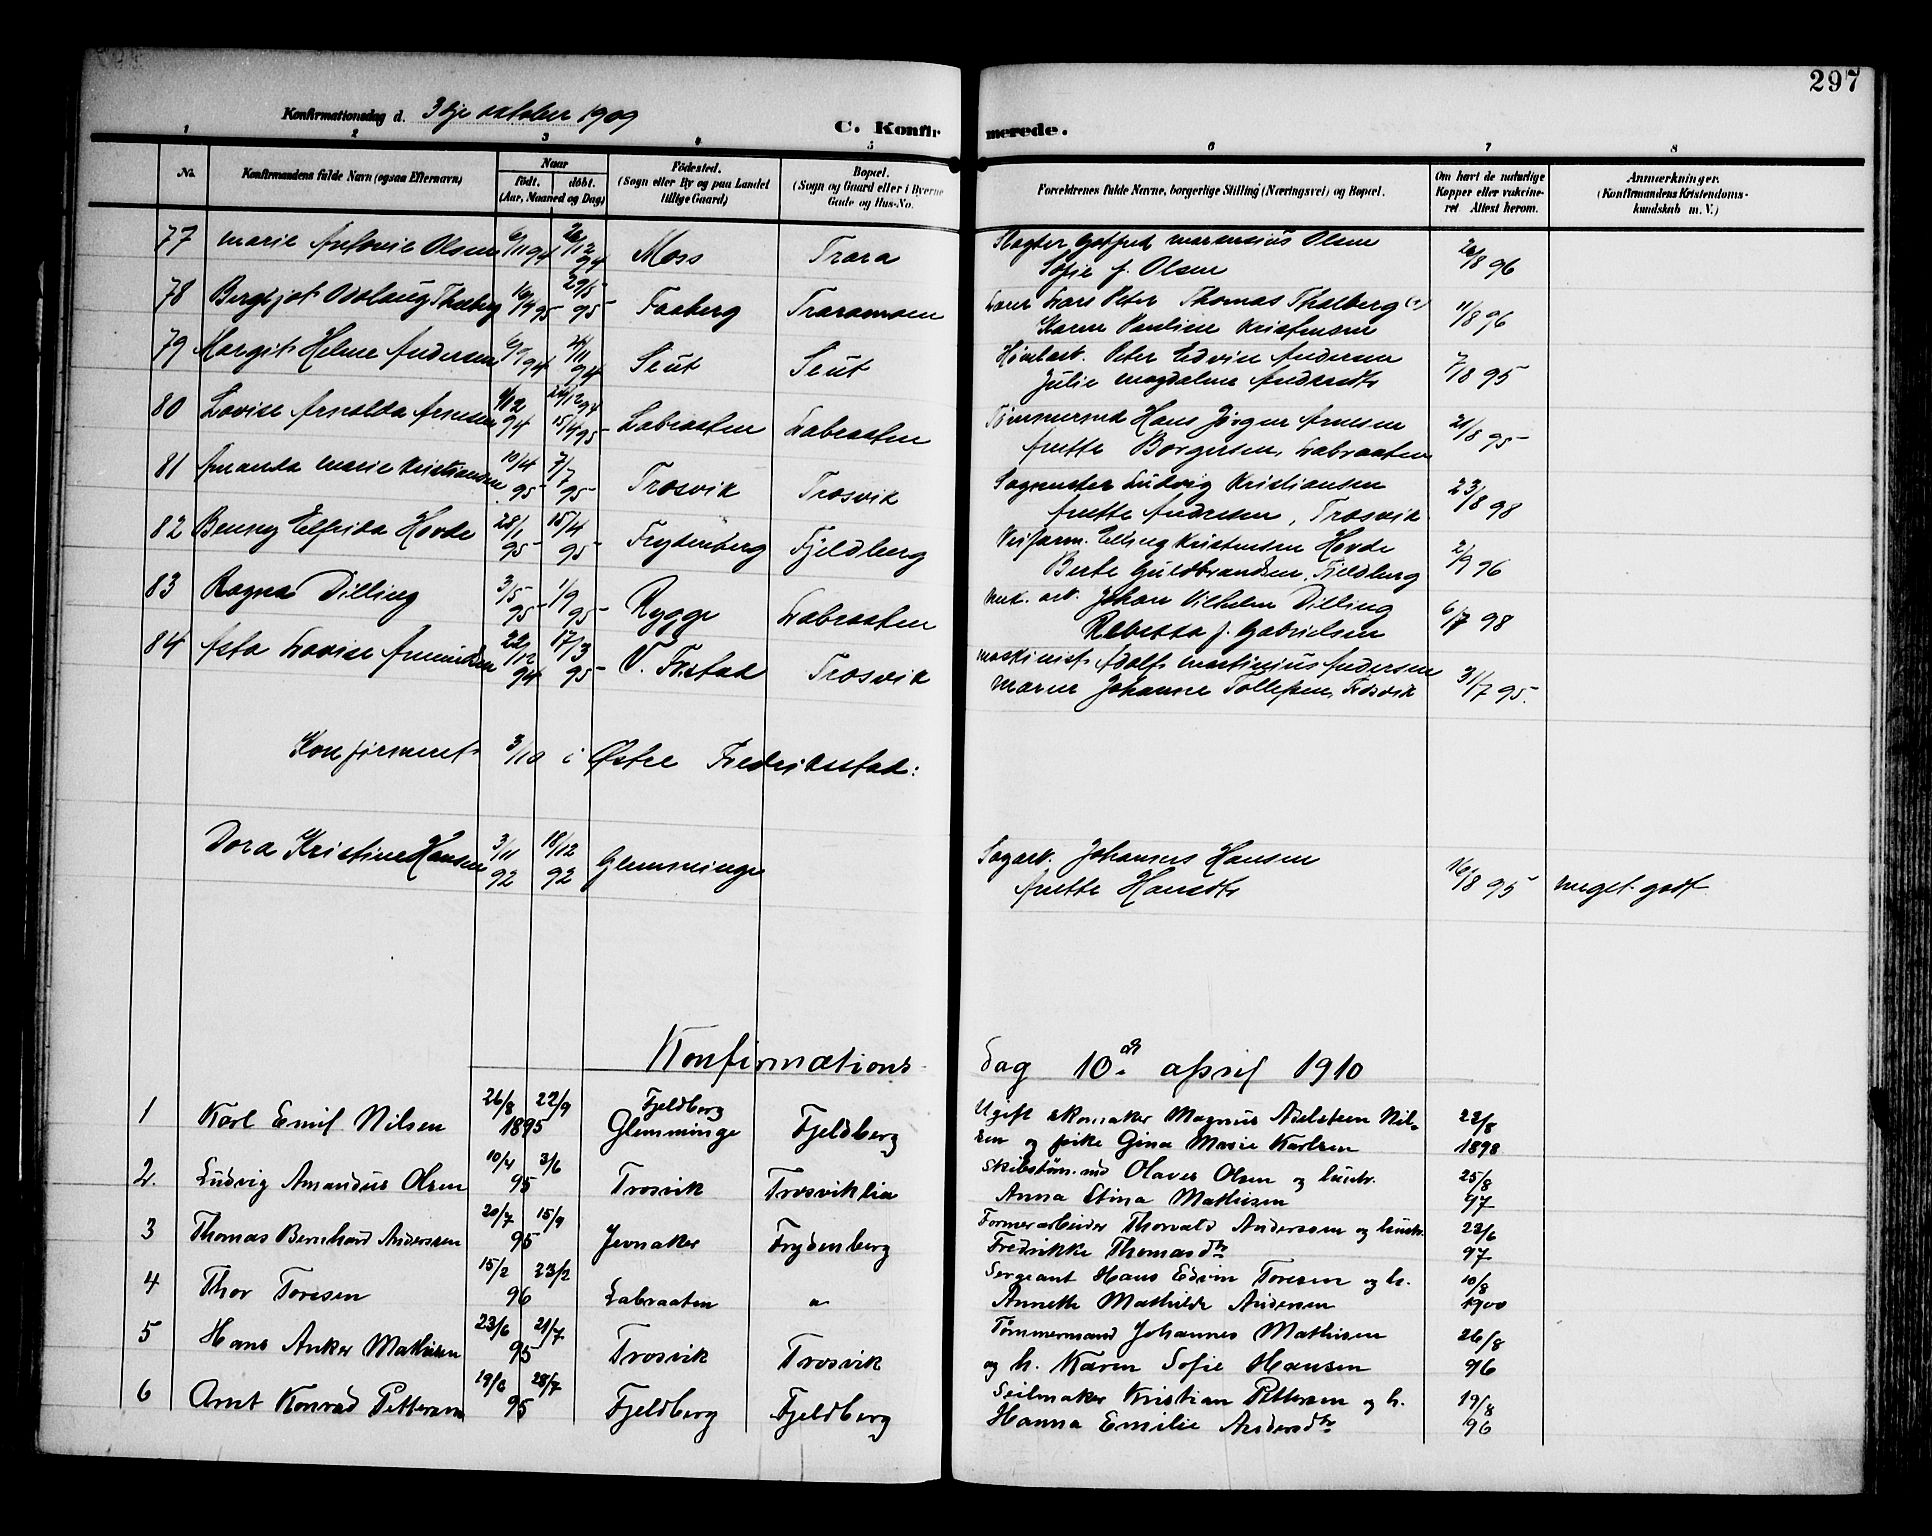 297
Konfirmationsdag d. 3dje oktober 1909
C. Konfirmerede.
1 2 3 4 5 6 7 8
No. Konfirmandens fulde Navn (ogsaa Efternavn) Naar født. døbt. (Aar, Maaned og Dag) Fødested. (Sogn eller By og paa Landet tillige Gaard) Bopæl. (Sogn og Gaard eller i Byerne Gade og Hus-No. Forældrenes fulde Navne, borgerlige Stilling (Næringsvei) og Bopæl. Om havt de naturlige Kopper eller vakcineret Attest herom. Anmerkninger. (Konfirmandens Kristendomskundskab m. V.)
77 Marie Antonie Olsen 6/11 94 26/12 94 Moss Trara Slagter Gotfred Marensius Olsen
Sofie f. Olsen 26/8 96
78 Bergljot Odlaug Thalberg 16/4 95 29/5 95 Faaberg Traramoen Lars Peter Thomas Thalberg (?)
Karen Pauline Kristensen 11/8 96
79 Margit Helene Andersen 6/9 94 24/11 94 Seut Seut Høvlark. Peter Edvin Andersen
Julie Magdalene Andersdtr 7/8 95
80 Lovise Arnolda Arnesen 9/12 94 26/12 94 15/4 95 Labraaten Labraaten Tømmermd Hans Jørgen Arnesen
Anette Borgersen, Labraaten 21/8 95
81 Amanda Marie Kristiansen 10/4 95 7/7 95 Trosvik Trosvik Sagmester Ludvig Kristiansen
Anette Andresen, Trosvik 23/8 98
82 Benny Elfrida Hovde 28/1 95 15/4 95 Frydenberg Fjeldberg Veiform. Elling Kristensen Hovde
Berte Guldbrandsen, Fjeldberg 2/9 96
83 Ragna Dilling 3/5 95 1/9 95 Rygge Labraaten mek. ark. Johan Vilhelm Dilling
Rebekka f. Gabrielsen 6/7 98
84 Asta Lovise Amundsen 22/12 94 17/3 95 V. Fr.stad Trosvik maskinist Adolf Martinius Andersen
Maren Johanne Tollefsen, Trosvik 31/7 95.
Konfirmeret 3/10 i Østre Fredrikstad:
Dora Kristine Hansen 3/11 92 18/12 92 Glemminge Sagark. Johannes Hansen
Anette Hansdtr 16/8 95 meget godt
Konfirmations dag 10de april 1910
1 Karl Emil Nilsen 26/8 22/9 1895 Fjeldberg Glemminge Fjeldberg Ugift skomaker Magnus Adelsteen Nil-
sen og pike Gina Marie Karlsen 22/8 1898
2. Ludvig Amandus Olsen 10/4 3/6 95 Trosvik Trosviklia Skibstøm.md Olaves Olsen og hustr.
Anna Stina Mathisen 25/8 97
3 Thomas Bernhard Anderssen 20/7 15/9 95 Jevnaker Frydenberg Formerarbeider Thorvald Anderssen og hustr.
Fredrikke Thomasdtr 22/6 97
4 Thor Toresen 15/2 23/2 96 Labraaten " Sergeant Hans Edvin Toresen og h.
Annette Mathilde Andersen 10/8 1900
5 Hans Anker Mathisen 23/6 21/7 95 Trosvik Trosvik Tømmermand Johannes Mathisen
og h. Karen Sofie Hansen 26/8 96
6 Arnt Konrad Pettersen 19/6 28/7 95 Fjeldberg Fjeldberg Seilmaker Kristian Pettersen og h.
Hanna Emilie Andersdtr 19/8 96